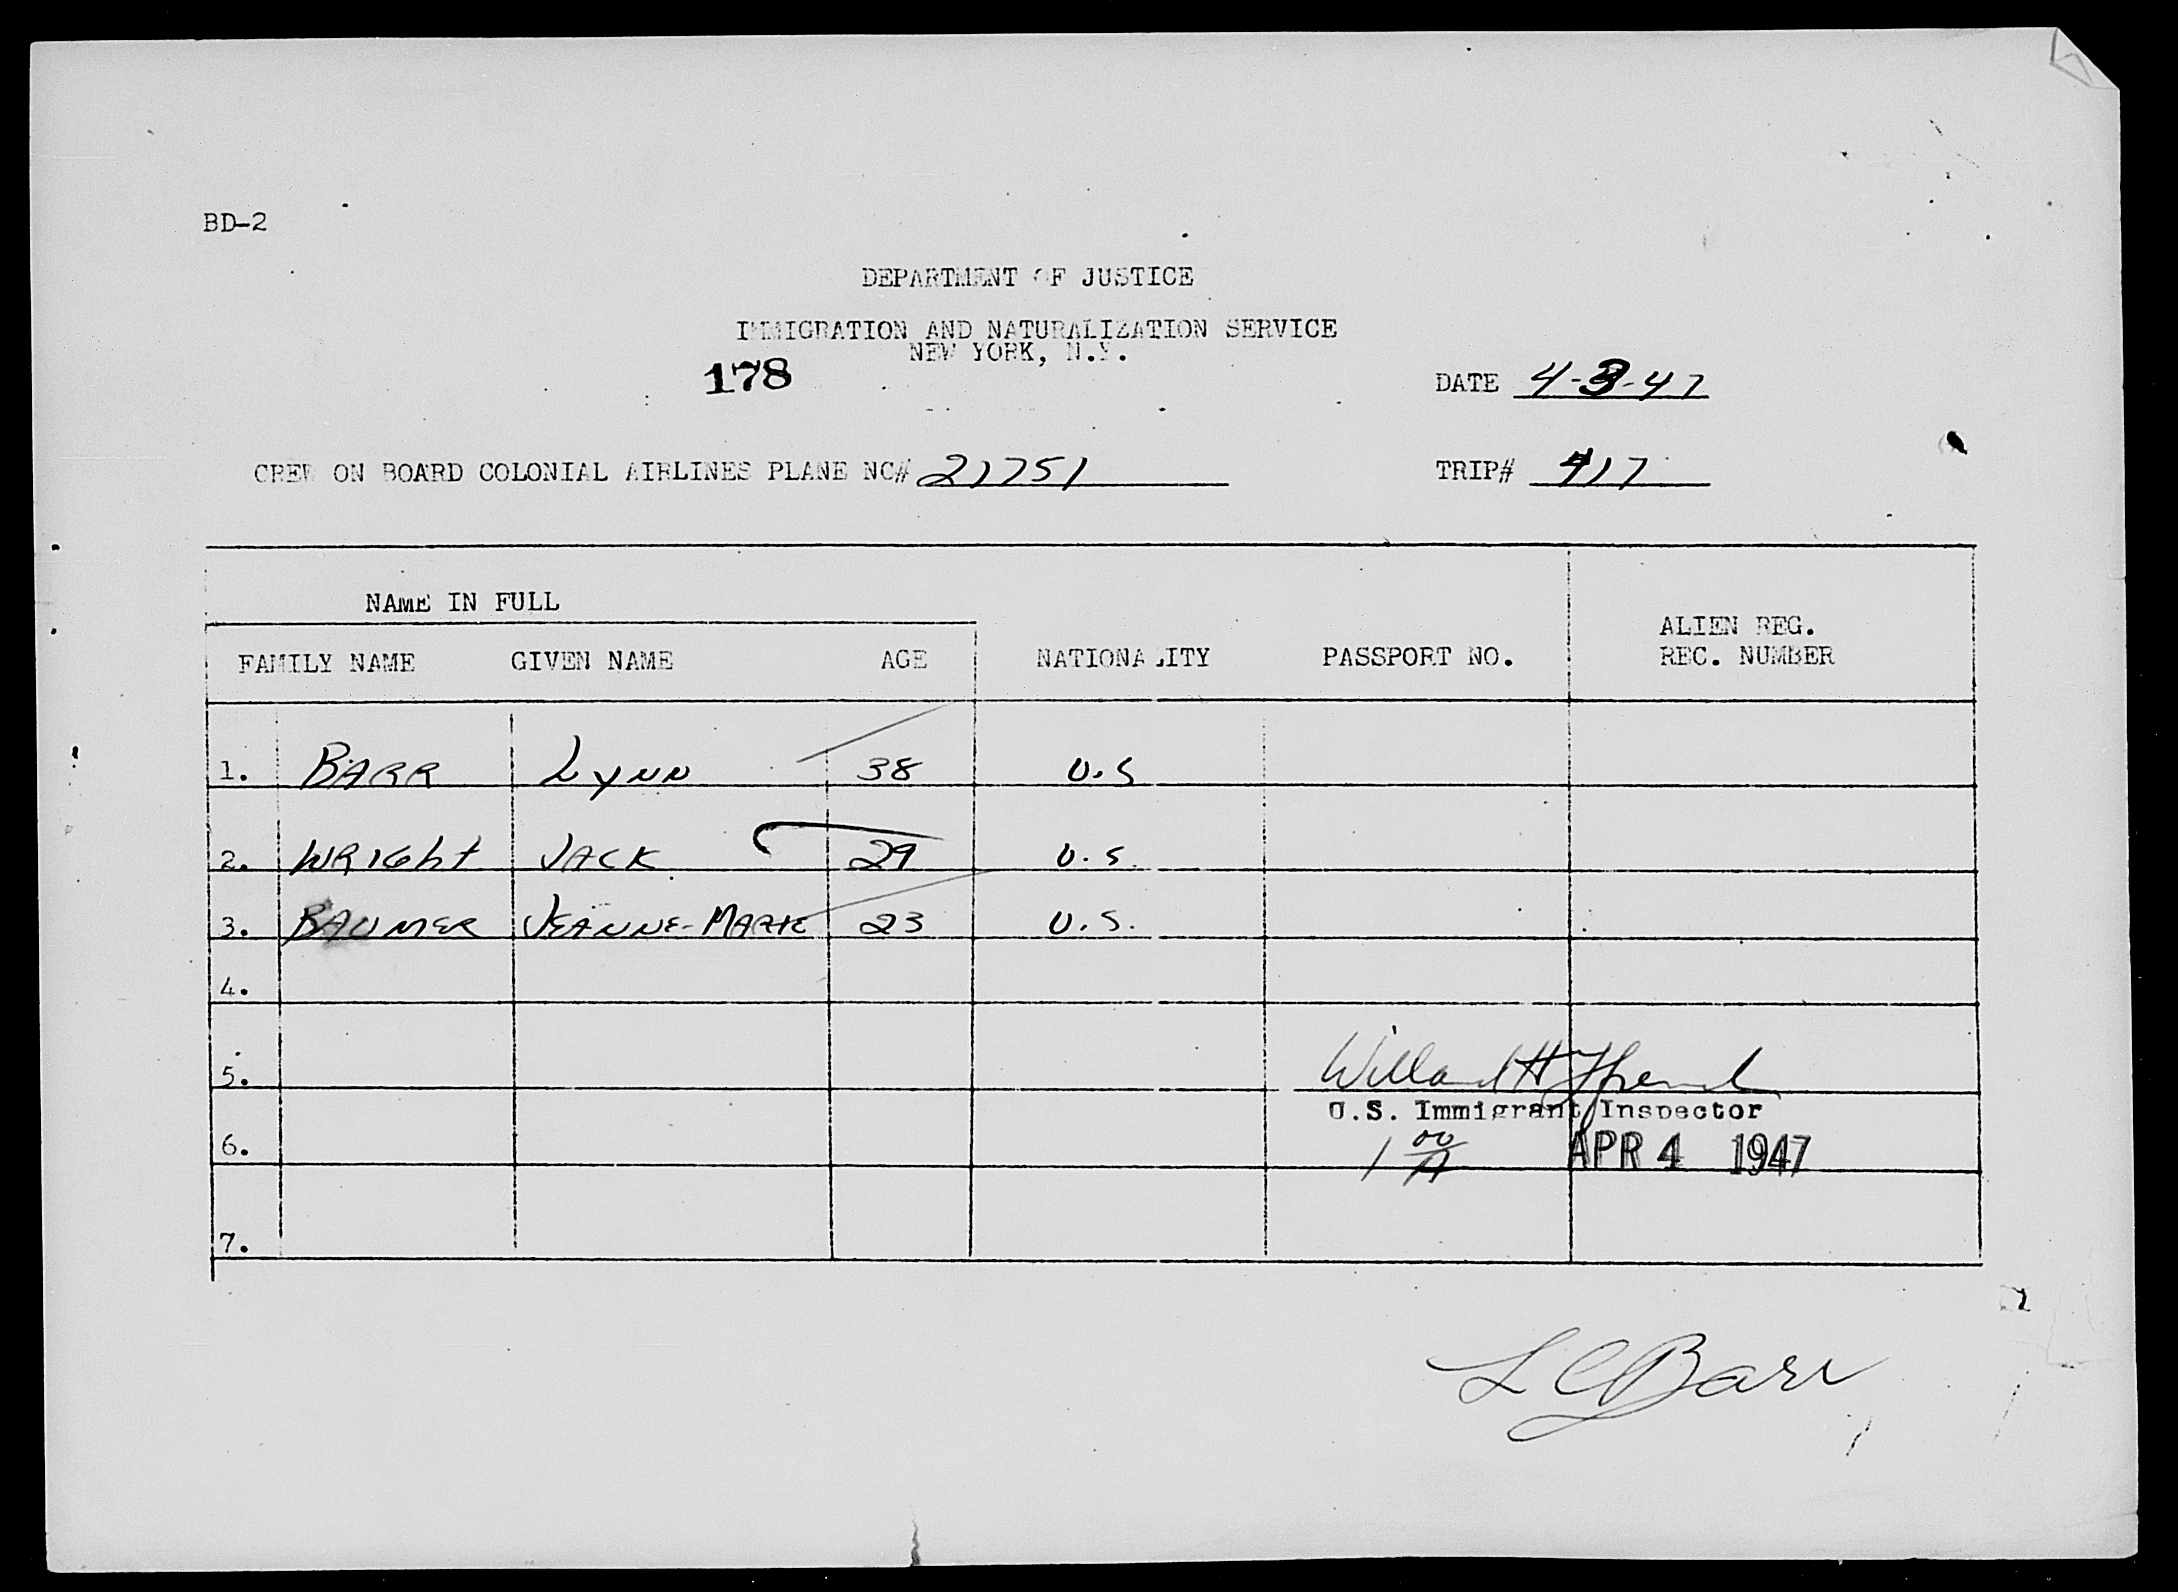 BD-2
DEPARTMENT OF JUSTICE
IMMIGRATION AND NATURALIZATION SERVICE
NEW YORK, N.Y.
178
DATE 4-3-47
CREW ON BOARD COLONIAL AIRLINES PLANE NC# 21751
TRIP# 417
NAME IN FULL
FAMILY NAME GIVEN NAME AGE NATIONALITY PASSPORT NO. ALIEN REG. REC. NUMBER
1. BARR LYNN 38 U.S
2. WRIGht JACK 29 U.S.
3. BAUMER JEANNE-MARIE 23 U.S.
4.
5. Willard H
U.S. Immigrant Inspector
6. 1 00/A APR 4 1947
7.
L C Barr